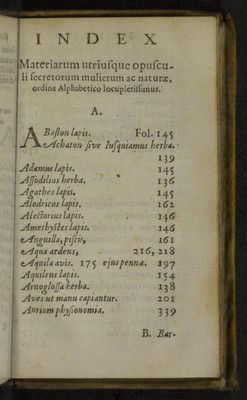 INDEX
Materiarum utriusque opuscu-
li secretorum mulierum ac naturæ,
ordine Alphabetico locupletissimus.
A.
ABeston lapis. Fol. 145
Achaton sive Iusquiamus herba.
139
Adamas lapis. 145
Affodilius herba. 136
Agathes lapis. 145
Alodricus lapis. 162
Alectorius lapis. 146
Amethystes lapis. 146
Anguilla, piscis, 161
Aqua ardens, 216, 218
Aquila avis. 175 ejus pennæ. 197
Aquileus lapis. 154
Arnoglossa herba. 138
Aves ut manu capiantur. 201
Aurium physionomia. 339
B. Bar-